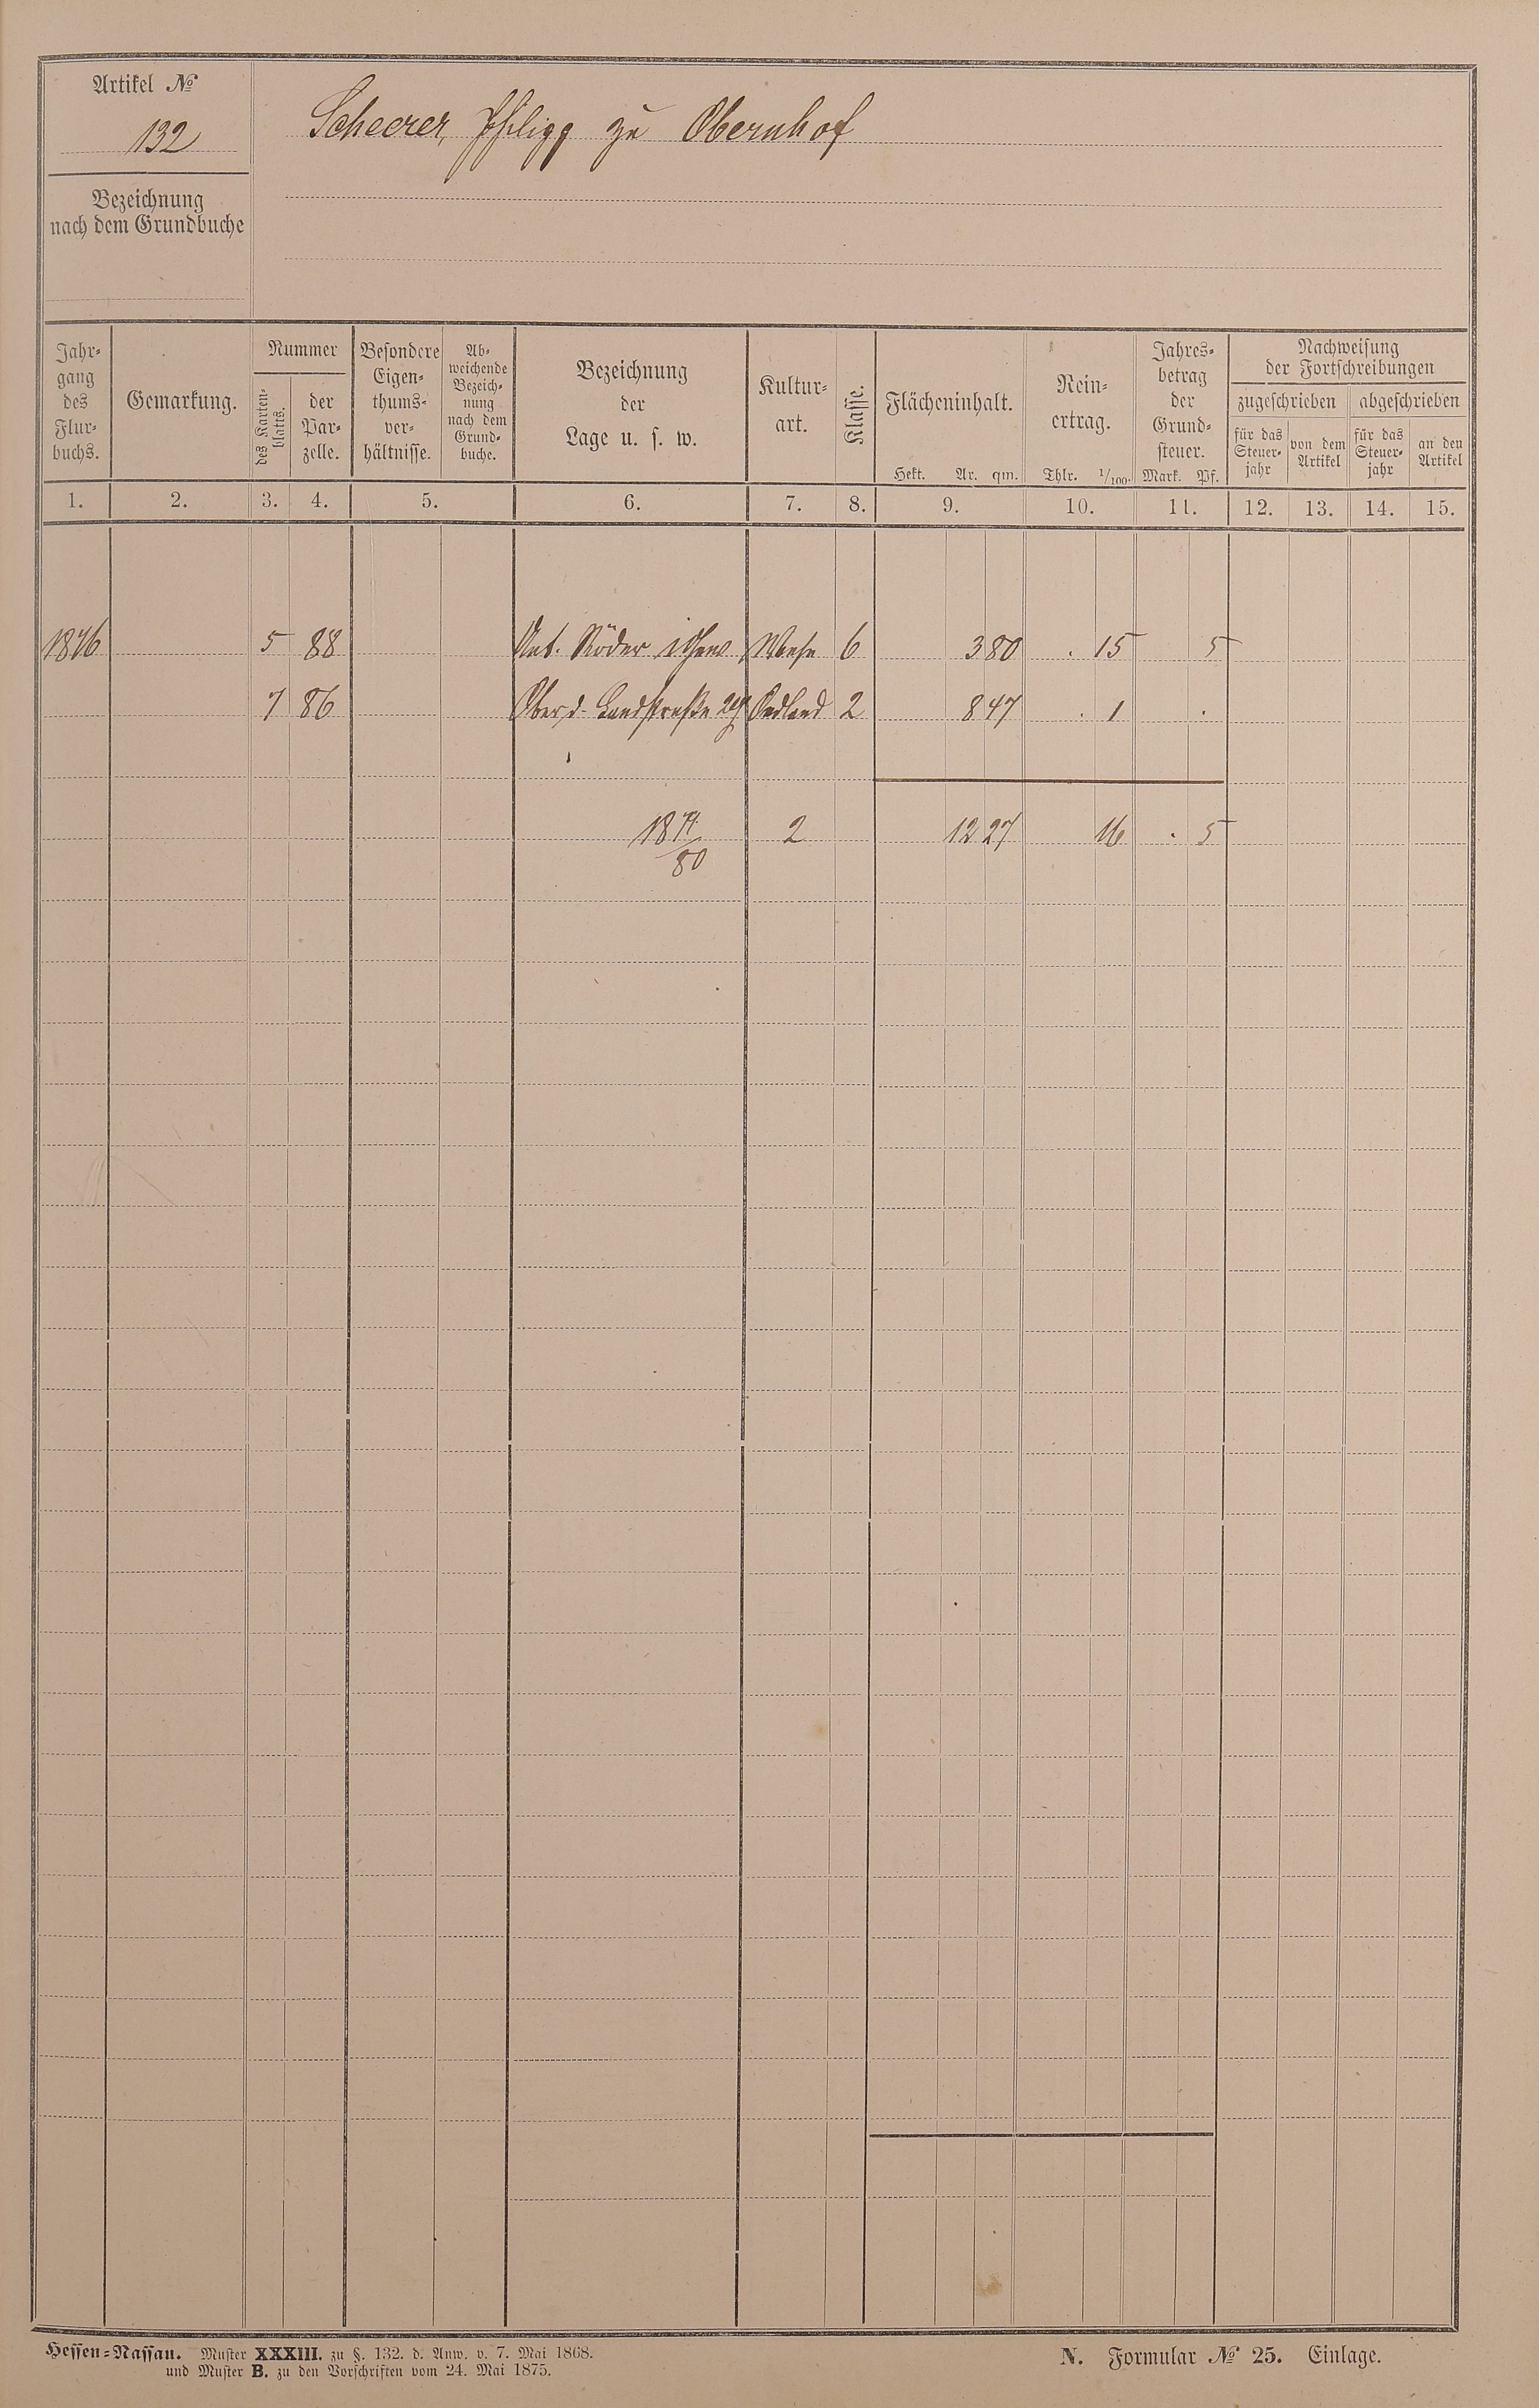 Artikel №
132
Scheerer, Philipp zu Obernhof
Bezeichnung
nach dem Grundbuche
Jahr-
gang
des
Flur-
buchs.
Gemarkung.
Nummer
des Karten-
blatts.
der
Par-
zelle.
Besondere
Eigen-
thums-
ver-
hältnisse.
Ab-
weichende
Bezeich-
nung
nach dem
Grund-
buche.
Bezeichnung
der
Lage u. s. w.
Kultur-
art.
Klasse.
Flächeninhalt.
Hekt. Ar. qm.
Rein-
ertrag.
Thlr. 1/100.
Jahres-
betrag
der
Grund-
steuer.
Mark. Pf.
Nachweisung
der Fortschreibungen
zugeschrieben abgeschrieben
für das
Steuer-
jahr
von dem
Artikel
für das
Steuer-
jahr
an den
Artikel
1. 2. 3. 4. 5. 6. 7. 8. 9. 10. 11. 12. 13. 14. 15.
1876 5 88 Röder 6 3 80 . 15 5
7 86 Ober d. Landstraße Oedland 2 8 47 . 1 .
18 79/80 2 12 27 16 . 5
Hessen-Nassau. Muster XXXIII. zu §. 132. d. Anw. v. 7. Mai 1868.
und Muster B. zu den Vorschriften vom 24. Mai 1875.
N. Formular № 25. Einlage.